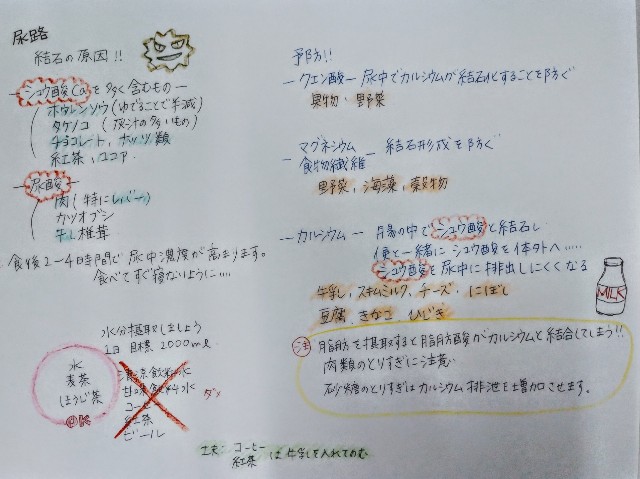 尿路
結石の原因!!
シュウ酸Caを多く含むもの
ホウレンソウ(ゆでることで半減)
タケノコ(灰汁の多いもの)
チョコレート、ナッツ類
紅茶、ココア
尿酸
肉(特にレバー)
カツオブシ
干し椎茸
食後2~4時間で尿中濃度が高まります。
食べてすぐ寝ないように…
水分摂取をしましょう
1日 目標 2000ml
水
麦茶
ほうじ茶
OK
清涼飲料水
甘味飲料水
コーヒー
紅茶
ビール
ダメ
工夫: コーヒー
紅茶 は牛乳を入れてのむ
予防!!
クエン酸ー尿中でカルシウムが結石化することを防ぐ
果物・野菜
マグネシウム
食物繊維 ー 結石形成を防ぐ
野菜、海藻、穀物
カルシウムー 腸の中でシュウ酸と結石し
便と一緒にシュウ酸を体外へ……
シュウ酸を尿中に排出しにくくなる
牛乳、スキムミルク、チーズ、にぼし
豆腐、ひじき
MILK
注 脂肪を摂取すると脂肪酸がカルシウムと結合してしまう!!
肉類のとりすぎに注意
砂糖のとりすぎはカルシウム排泄を増加させます。